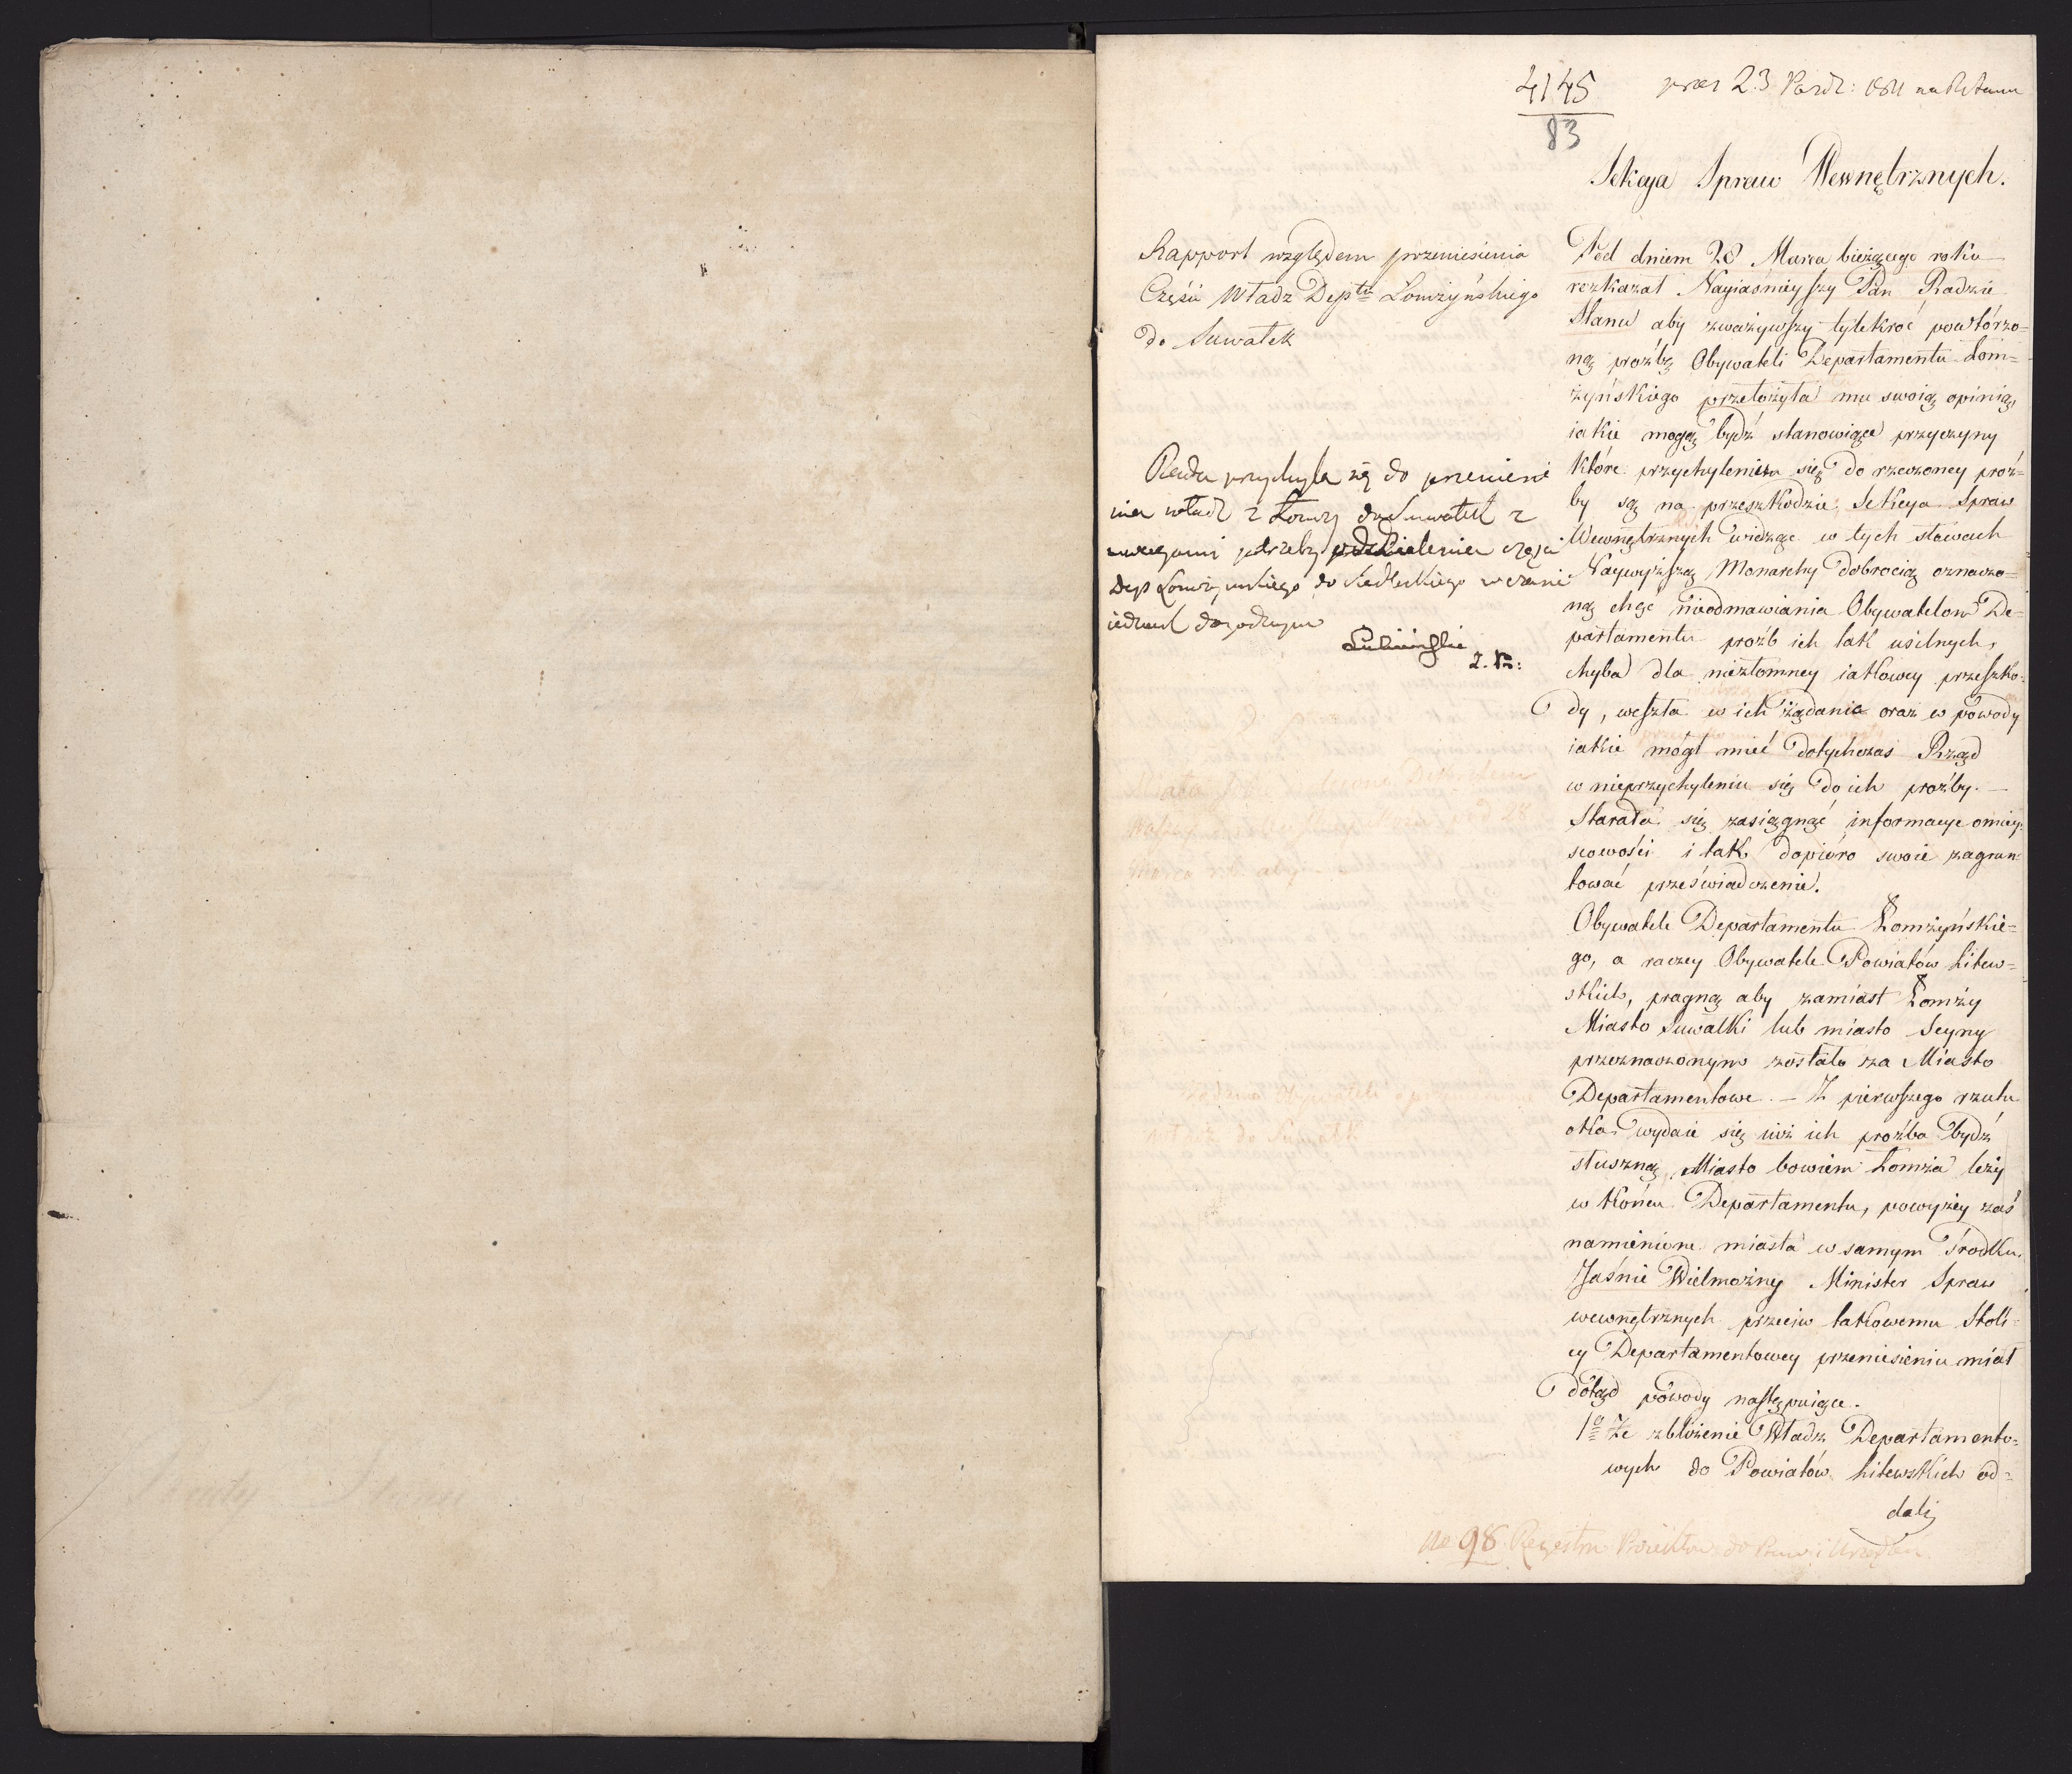 4145
83
prez 23 Pazdz: 1811 na R Stanu
Sekcya Spraw Wewnętrznych.
Rapport względem przeniesienia
Części Władz Deptu Łomżyńskiego
do Suwałek
Rada przychyla się do przeniesie
nia władz z Łomży do Suwałek z
uwagami potrzeby oddzielenia części
Dep Łomżyńskiego do Siedleckiego wczenie
iednak
Łubieński
Pod dniem 28 Marca bieżącego roku
rozkazał Nayiaśnieyszy Pan Radzie
Stanu aby zważywszy tylekroć powtórzo=
ną proźbę Obywateli Departamentu Łom=
żyńskiego przełożyła mu swoią opinią,
iakie mogą bydź stanowiące przyczyny
które przychyleniu się do rzeczoney proź=
by są na przeszkodzie; Sekcya Spraw
Wewnętrznych widząc w tych słowach
Naywyższą Monarchy dobrocią oznaczo=
ną chęć nieodmawiania Obywatelom De=
partamentu proźb ich tak usilnych,
chyba dla niezłomney iakowey przeszko=
dy, weszła w ich żądania oraz w powody
iakie mógł mieć dotychczas Rząd
w nieprzychyleniu się do ich proźby. —
Starała się zasięgnąć informacye o miey=
scowości i tak dopióro swoie zagrun=
tować przeświadczenie.
Obywatele Departamentu Łomżyńskie=
go, a raczey Obywatele Powiatów Litew=
skich, pragną aby zamiast Łomży
Miasto Suwałki lub miasto Seyny
przeznaczonym zostało za Miasto
Departamentowe. — Z pierwszego rzutu
oka wydaie się iż ich proźba bydź
słuszną, Miasto bowiem Łomża leży
w końcu Departamentu, powyżey zaś
namienione miasta w samym środku.
Jaśnie Wielmożny Minister Spraw
wewnętrznych przeciw takowemu Stoli=
cy Departamentowey przeniesieniu miał
dotąd powody następuiące.
1o Że zbliżenie Władz Departamento=
wych do Powiatów Litewskich od=
dali
No 98 Regestru Proiektów do Praw i Urządzeń